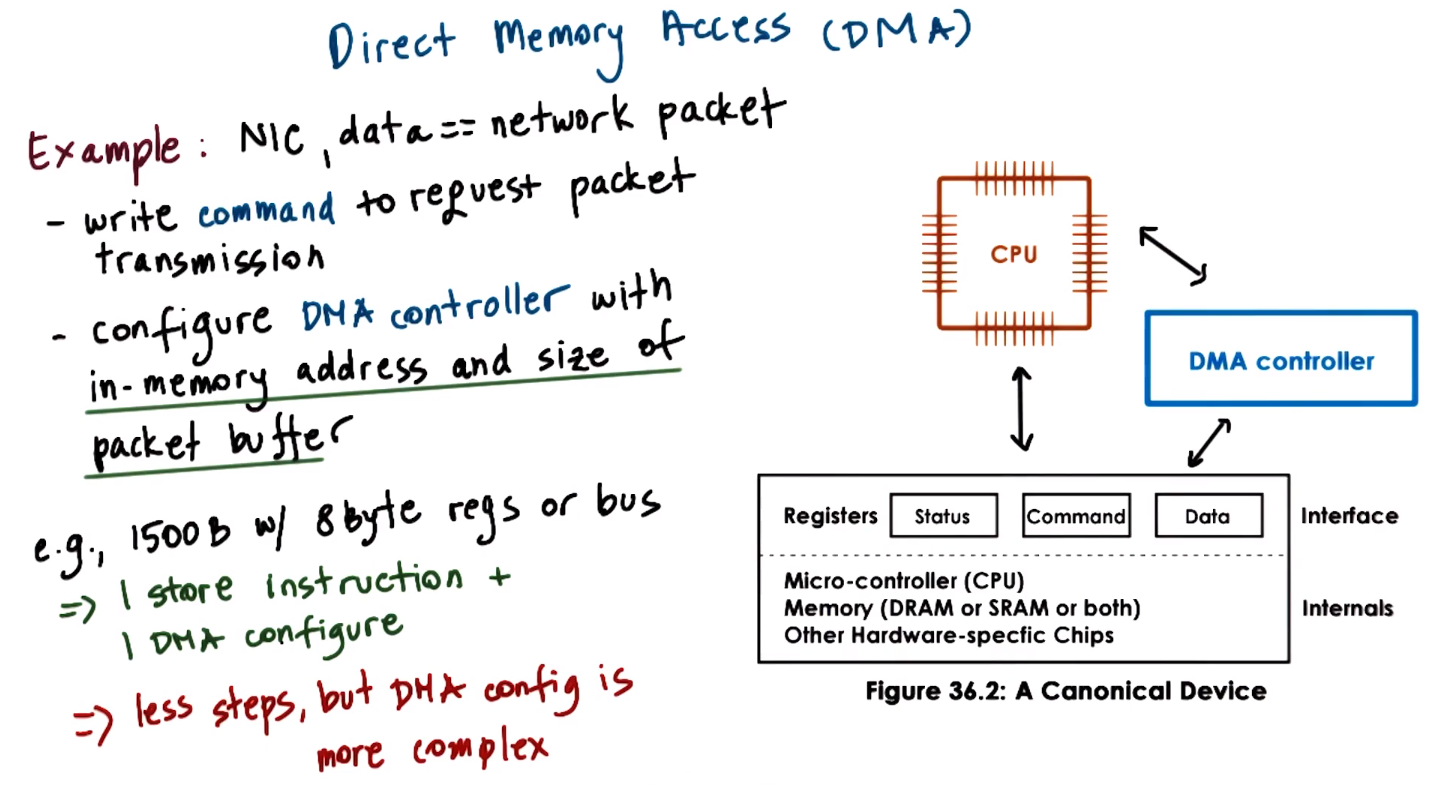 Direct Memory Access (DMA)
Example: NIC, data == network packet
- write command to request packet
transmission
- configure DMA controller with
in-memory address and size of
packet buffer
e.g., 1500B w/ 8 byte regs or bus
=> 1 store instruction +
1 DMA configure
=> less steps, but DMA config is
more complex
CPU
DMA controller
Registers Status Command Data Interface
Micro-controller (CPU)
Memory (DRAM or SRAM or both) Internals
Other Hardware-specfic Chips
Figure 36.2: A Canonical Device